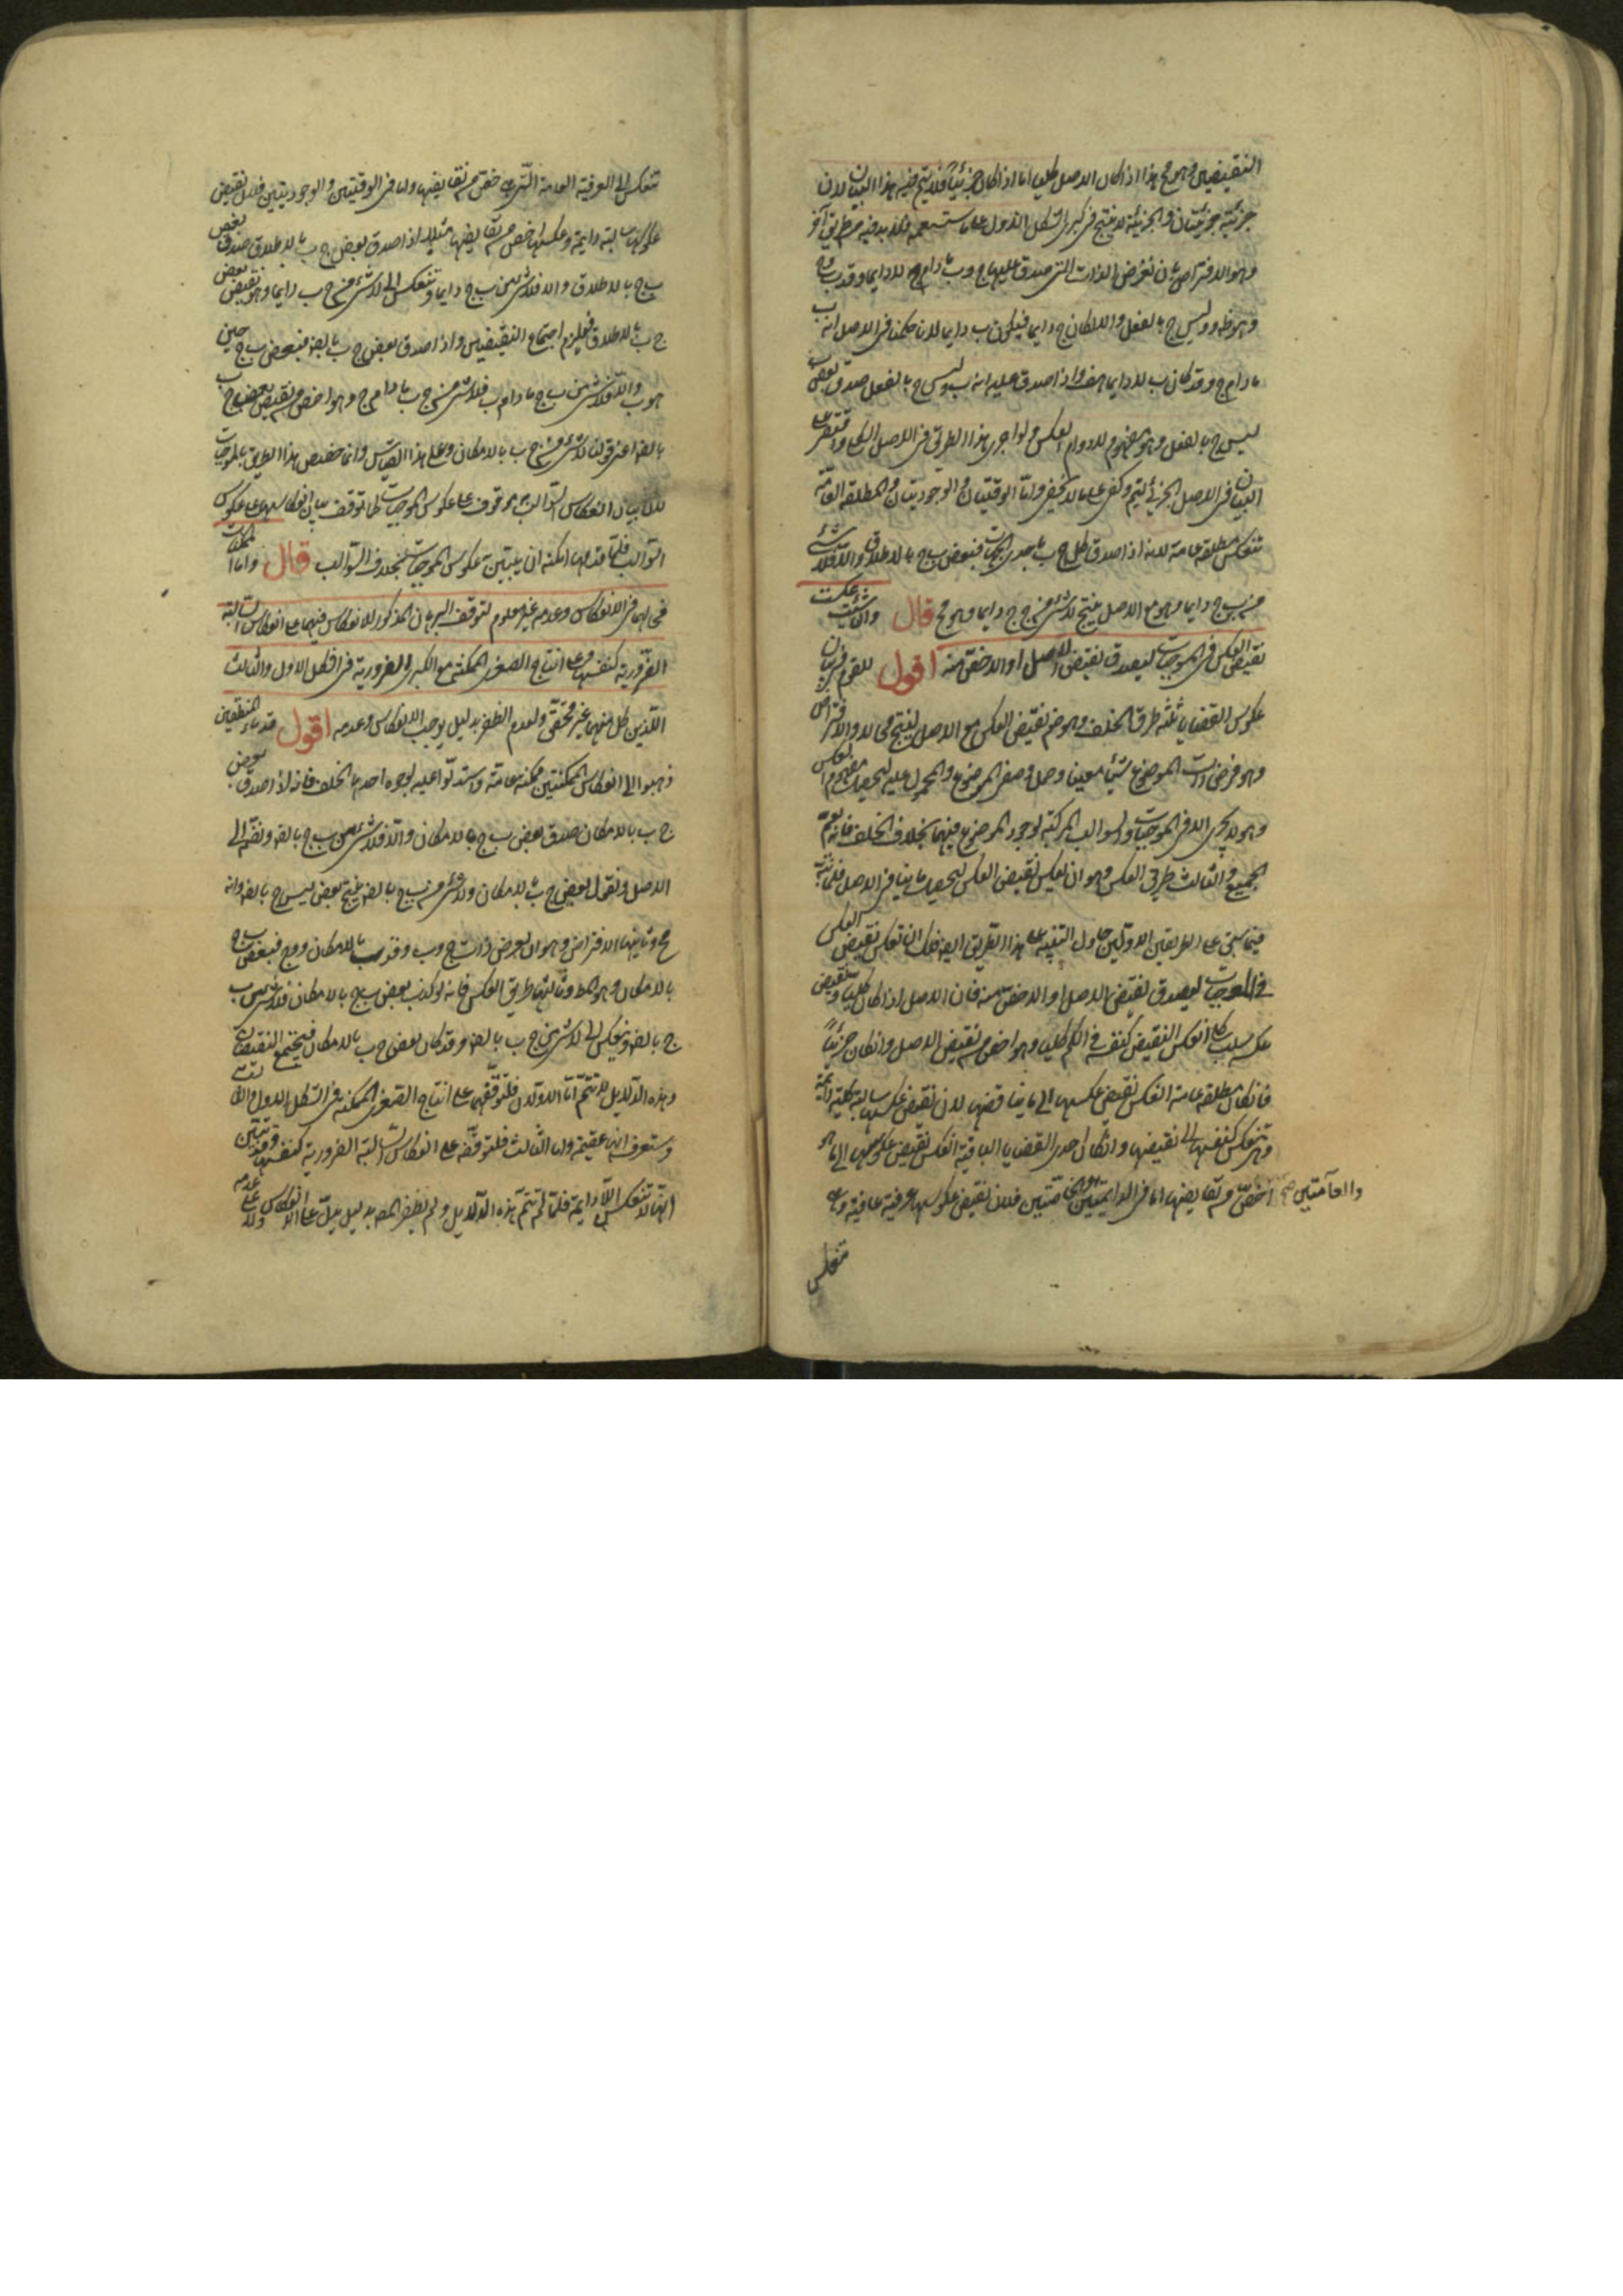 النقيضين وهو مح هذا اذا كان الاصل كليا اما اذا كان جزئيا فلا يتم فيه هذا البيان لان
جزئيه جزئيتان والجزئية لا ينتج في كبرى الشكل الاول على ما ستسمعه فلا بد فيه من طريق آخر
وهو الافتراض بان نفرض الذات التي صدق عليها ج وب مادام ج لا دايما وقد ب وج
وهو ظ و د ليس ج بالفعل والا لكان ج دايما فيكون ب دايما لانا حكمنا في الاصل انه ب
مادام ج وقد كان ب لا دايما هف واذا صدق عليه انه ب وليس ج بالفعل صدق بعض ب
ليس ج بالفعل وهو مفهوم لا دوام العكس ولو اجرى هذا الطريق في الاصل الكلي واقتصر على
البيان في الاصل الجزئي لتم وكفى على ما لا يخفى واما الوقتيتان والوجوديتان والمطلقة العامة
تنعكس مطلقة عامة لانه اذا صدق كل ج ب باحدى الجهات فبعض ب ج بالاطلاق والا فلا شئ
من ب ج دايما وهو مع الاصل ينتج لا شئ من ج ج دايما وهو مح قال وان شئت عكست
نقيض العكس في الموجبات ليصدق نقيض الاصل او الاخص منه اقول للقوم في بيان
عكوس القضايا ثلثة طرق الخلف وهو ضم نقيض العكس مع الاصل لينتج محالا والافتراض
وهو فرض ذات الموضوع شيئا معينا وحمل وصفي الموضوع والمحمول عليه ليحصل مفهوم العكس
وهو لا يجري الا في الموجبات والسوالب المركبة لوجود الموضوع فيهما بخلاف الخلف فانه يعم
الجميع والثالث طريق العكس وهو ان يعكس نقيض العكس ليحصل ما ينافي الاصل فلما نبه
فيما سبق على الطريقين الاولين حاول التنبيه على هذا الطريق ايضا فلك ان تعكس نقيض العكس
في الموجبات ليصدق نقيض الاصل او الاخص منه فان الاصل اذا كان كليا ونقيض
عكسه سلب كلي انعكس النقيض كنفسه في الكم كليا وهو اخص من نقيض الاصل وان كان جزئيا
فان كان مطلقة عامة انعكس نقيض عكسها الى ما يناقضها لان نقيض عكسها سالبة كلية دايمة
وهي تنعكس كنفسها الى نقيضها وان كان احدى القضايا الباقية انعكس نقيض عكوسها الى ما هو
اخص من نقايضها اما في الدايمتين والعامتين صح والخاصتين فلان نقيض عكوسها عرفية عامة وهي
تنعكس
تنعكس الى العرفية العامة التي هي اخص من نقايضها واما في الوقتيتين والوجوديتين فلان نقيض
عكوسها سالبة دايمة وعكسها اخص من نقايضها مثلا اذا صدق بعض ج ب بالاطلاق صدق بعض
ب ج بالاطلاق والا فلا شئ من ب ج دايما وتنعكس الى لا شئ من ج ب دايما وهو نقيض بعض
ج ب بالاطلاق فيلزم اجتماع النقيضين واذا صدق بعض ج ب بالضرورة فبعض ب ج حين
هو ب والا فلا شئ من ب ج مادام ب فلا شئ من ج ب مادام ج وهو اخص من نقيض بعض ج ب
بالضرورة اعني قولنا لا شئ من ج ب بالامكان وعلى هذا القياس وانما خصص هذا الطريق بالموجبات
لان بيان انعكاس السوالب به موقوف على عكوس الموجبات كما توقف بيان انعكاسها على عكوس
السوالب فلما قدمها امكنه ان يبين به عكوس الموجبات بخلاف السوالب قال واما الممكنتان
فحالهما في الانعكاس وعدمه غير معلوم لتوقف البرهان المذكور للانعكاس فيهما على انعكاس السالبة
الضرورية كنفسها وعلى انتاج الصغرى الممكنة مع الكبرى الضرورية في الشكل الاول والثالث
اللذين كل منهما غير محقق ولعدم الظفر بدليل يوجب الانعكاس وعدمه اقول قدماء المنطقيين
ذهبوا الى انعكاس الممكنتين ممكنة عامة واستدلوا عليه بوجوه احدها الخلف فانه اذا صدق بعض
ج ب بالامكان صدق بعض ب ج بالامكان والا فلا شئ من ب ج بالضرورة ونضمه الى
الاصل ونقول بعض ج ب بالامكان ولا شئ من ب ج بالضرورة ينتج بعض ج ليس ج بالضرورة وانه
مح وثانيها الافتراض وهو ان نفرض ذات ج وب د فد ب بالامكان و د ج فبعض ب ج
بالامكان وهو المط وثالثها طريق العكس فانه لو كذب بعض ب ج بالامكان فلا شئ من ب
ج بالضرورة وينعكس الى لا شئ من ج ب بالضرورة وقد كان بعض ج ب بالامكان فيجتمع النقيضان
وهذه الدلايل لا تتم اما الاولان فلتوقفهما على انتاج الصغرى الممكنة في الشكل الاول والثالث
وستعرف انها عقيمة واما الثالث فلتوقفه على انعكاس السالبة الضرورية كنفسها وقد تبين
انها لا تنعكس الا دايمة فلما لم تتم هذه الدلايل ولم يظفر المص بدليل يدل على الانعكاس ولا على عدمه